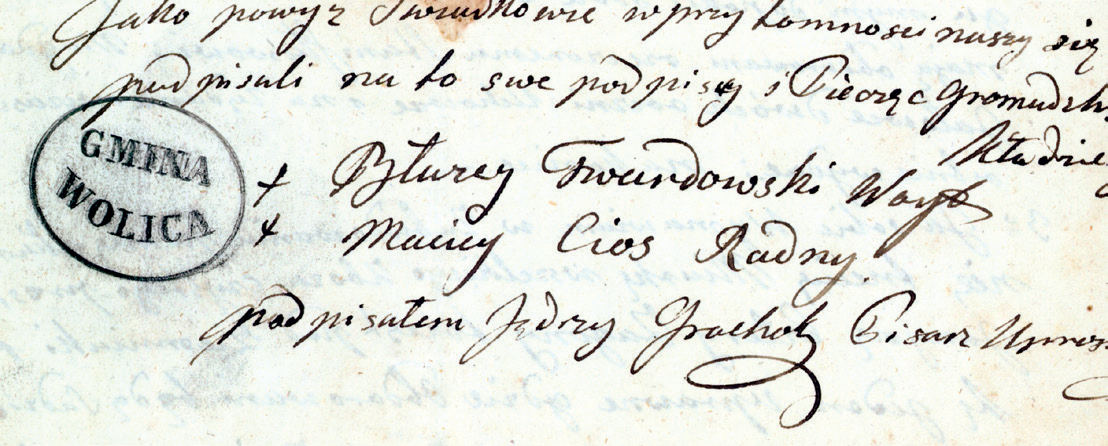 Jako powyz Swiadkowie wprzytomnosci naszy się
podpisali na to swe podpisy i Pieczęc Gromadzk
kładzie
GMINA
WOLICA
+ Błurzy Twardowski Woyt
+ Maciey Cios Radny
podpisałem Jędrzy Grochol Pisarz